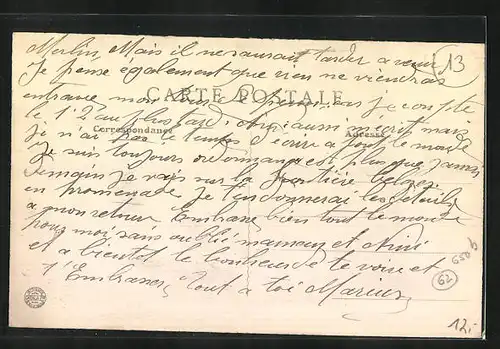 Merlin, Mais il ne saurait tarder a venir
13
Je pense également que rien ne viendra
entraver mon
CARTE POSTALE
je compte
le 1º, 2 au plus tard. aussi m'écrit mais
Correspondance
Adresse
je n'ai pas le temps d'écrire a tout le monde
Je suis toujours ordonnance et plus que jamais
Demain je vais sur la frontière
en promenade, je t'en donnerai les détails
a mon retour Embrasse bien tout le monde
pour moi sans oublié maman et Nini
et a bientôt le bonheur de te voir et
t'Embrasser, Tout a toi Marius
62
12.-